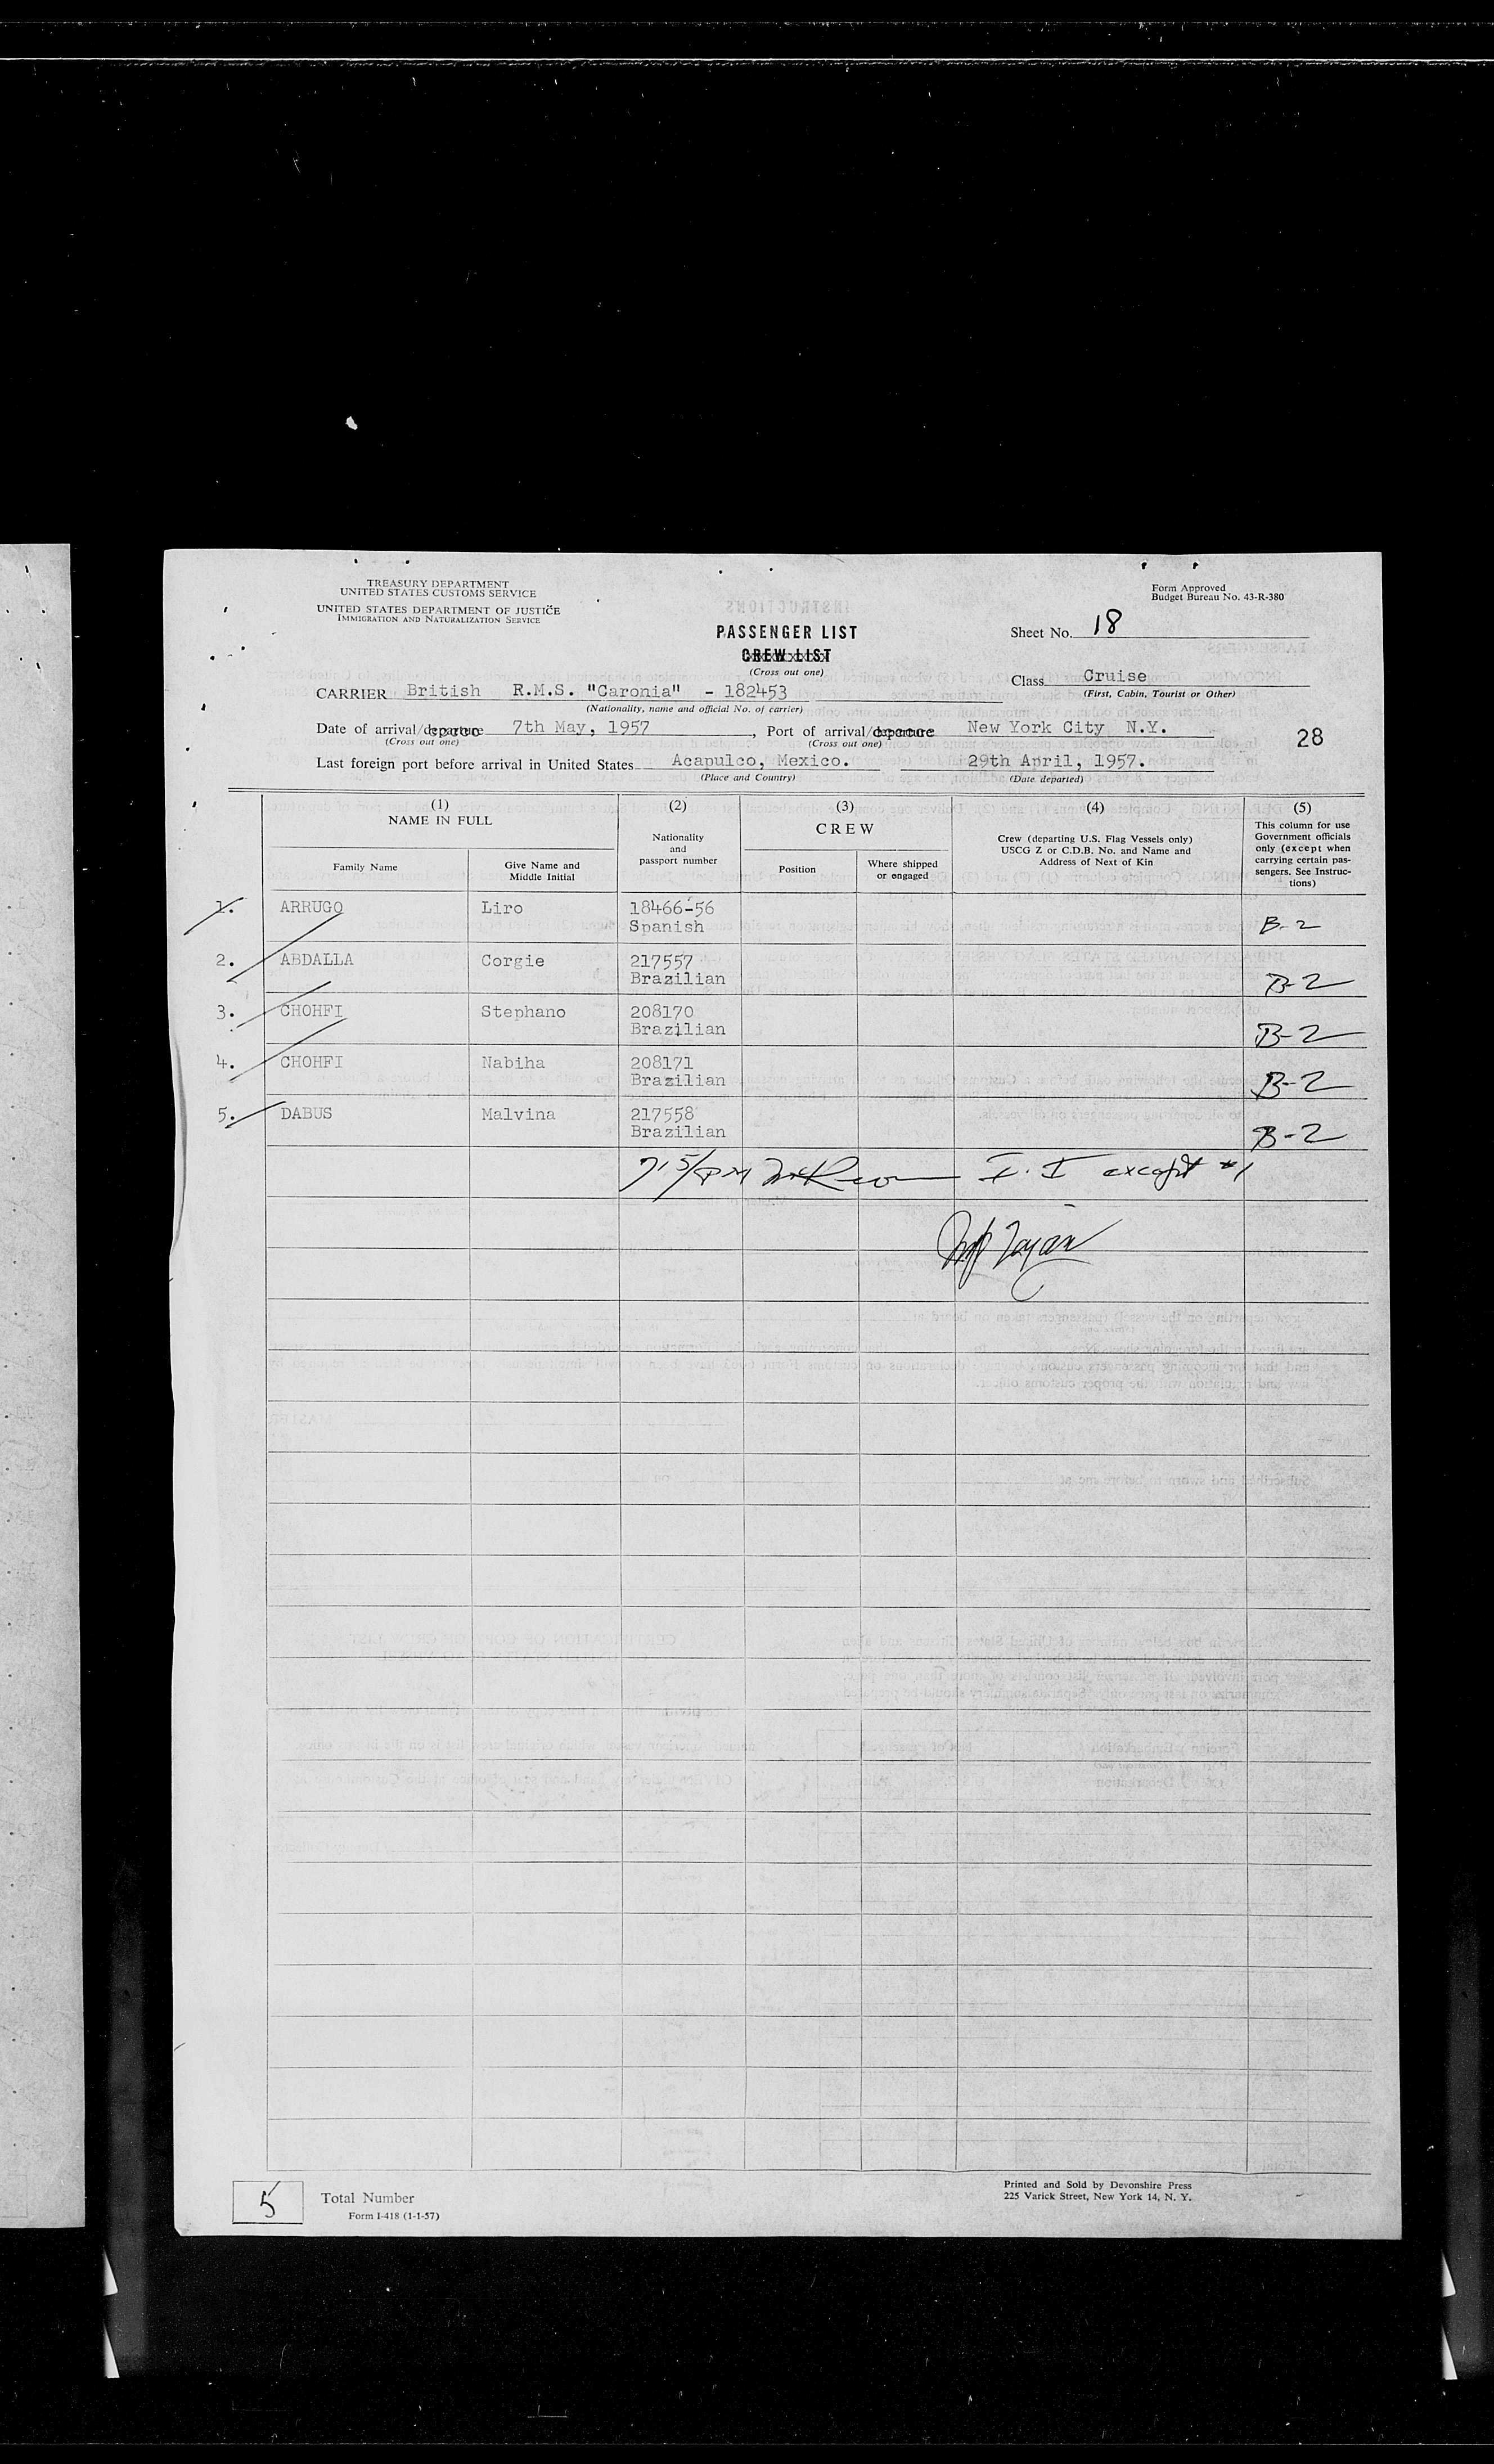 TREASURY DEPARTMENT
UNITED STATES CUSTOMS SERVICE
UNITED STATES DEPARTMENT OF JUSTICE
IMMIGRATION AND NATURALIZATION SERVICE
Form Approved
Budget Bureau No. 43-R-380
PASSENGER LIST
CREW LIST
(Cross out one)
Sheet No. 18
Class Cruise
(First, Cabin, Tourist or Other)
CARRIER British R.M.S. "Caronia" - 182453
(Nationality, name and official No. of carrier)
Date of arrival/departure 7th May, 1957, Port of arrival/departure New York City N.Y.
(Cross out one) (Cross out one)
28
Last foreign port before arrival in United States Acapulco, Mexico. 29th April, 1957.
(Place and Country) (Date departed)
(1) (2) (3) (4) (5)
NAME IN FULL
Family Name
Give Name and
Middle Initial
Nationality
and
passport number
CREW
Position
Where shipped
or engaged
Crew (departing U.S. Flag Vessels only)
USCG Z or C.D.B. No. and Name and
Address of Next of Kin
This column for use
Government officials
only (except when
carrying certain pas-
sengers. See Instruc-
tions)
1. ARRUGO Liro 18466-56
Spanish B-2
2. ABDALLA Corgie 217557
Brazilian B-2
3. CHOHFI Stephano 208170
Brazilian B-2
4. CHOHFI Nabiha 208171
Brazilian B-2
5. DABUS Malvina 217558
Brazilian B-2
I. I except #1
5 Total Number
Form I-418 (1-1-57)
Printed and Sold by Devonshire Press
225 Varick Street, New York 14, N. Y.